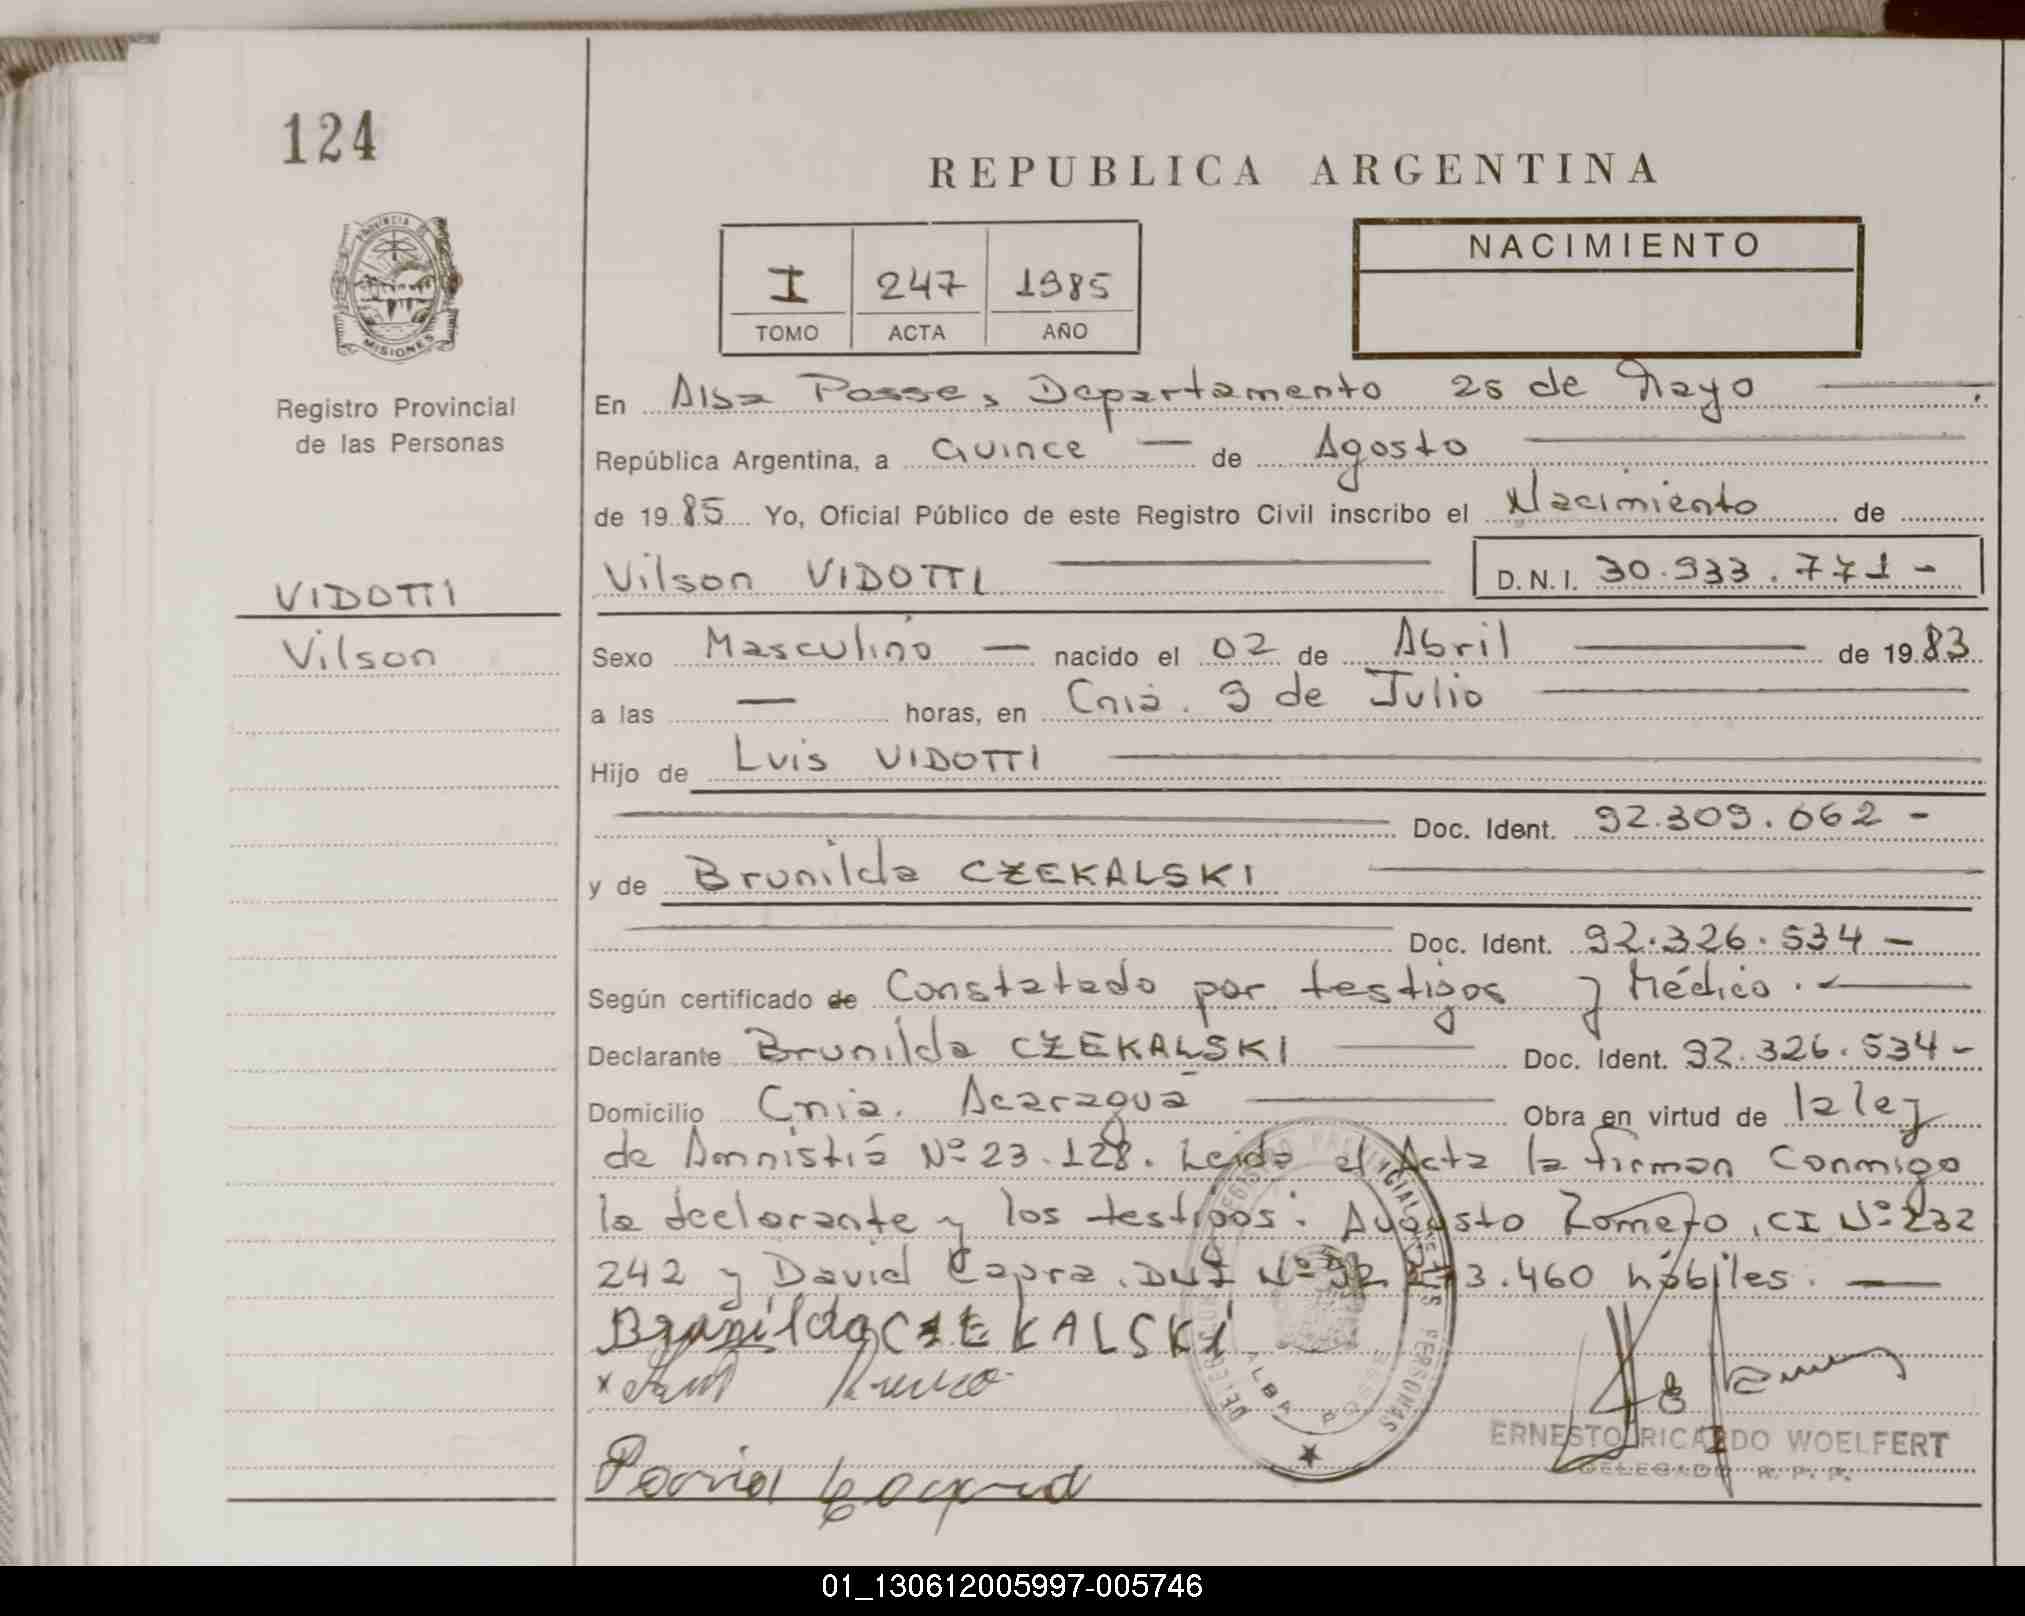 124
REPUBLICA ARGENTINA
PROVINCIA DE
MISIONES
NACIMIENTO
I 247 1985
TOMO ACTA AÑO
Registro Provincial
de las Personas
En Alba Posse, Departamento 25 de Mayo
República Argentina, a Quince de Agosto
de 1985 Yo, Oficial Público de este Registro Civil inscribo el Nacimiento de
VIDOTTI
Vilson
Vilson VIDOTTI D.N.I. 30.933.771-
Sexo Masculino nacido el 02 de Abril de 1983
a las — horas, en Cnia. 9 de Julio
Hijo de Luis VIDOTTI
Doc. Ident. 92.309.062-
y de Brunilda CZEKALSKI
Doc. Ident. 92.326.534-
Según certificado de Constatado por testigos y Médico.
Declarante Brunilda CZEKALSKI Doc. Ident. 92.326.534-
Domicilio Cnia. Acaraguá Obra en virtud de la ley
de Amnistiá Nº 23.128. Leida el Acta la firman conmigo
la declarante y los testigos: Augusto Romero, CI Nº 232
242 y David Capra, DNI Nº 3.460 hábiles.
Brunilda CZEKALSKI
ALBA POSSE
ERNESTO RICARDO WOELFERT
DELEGADO R. P. P.
01_130612005997-005746